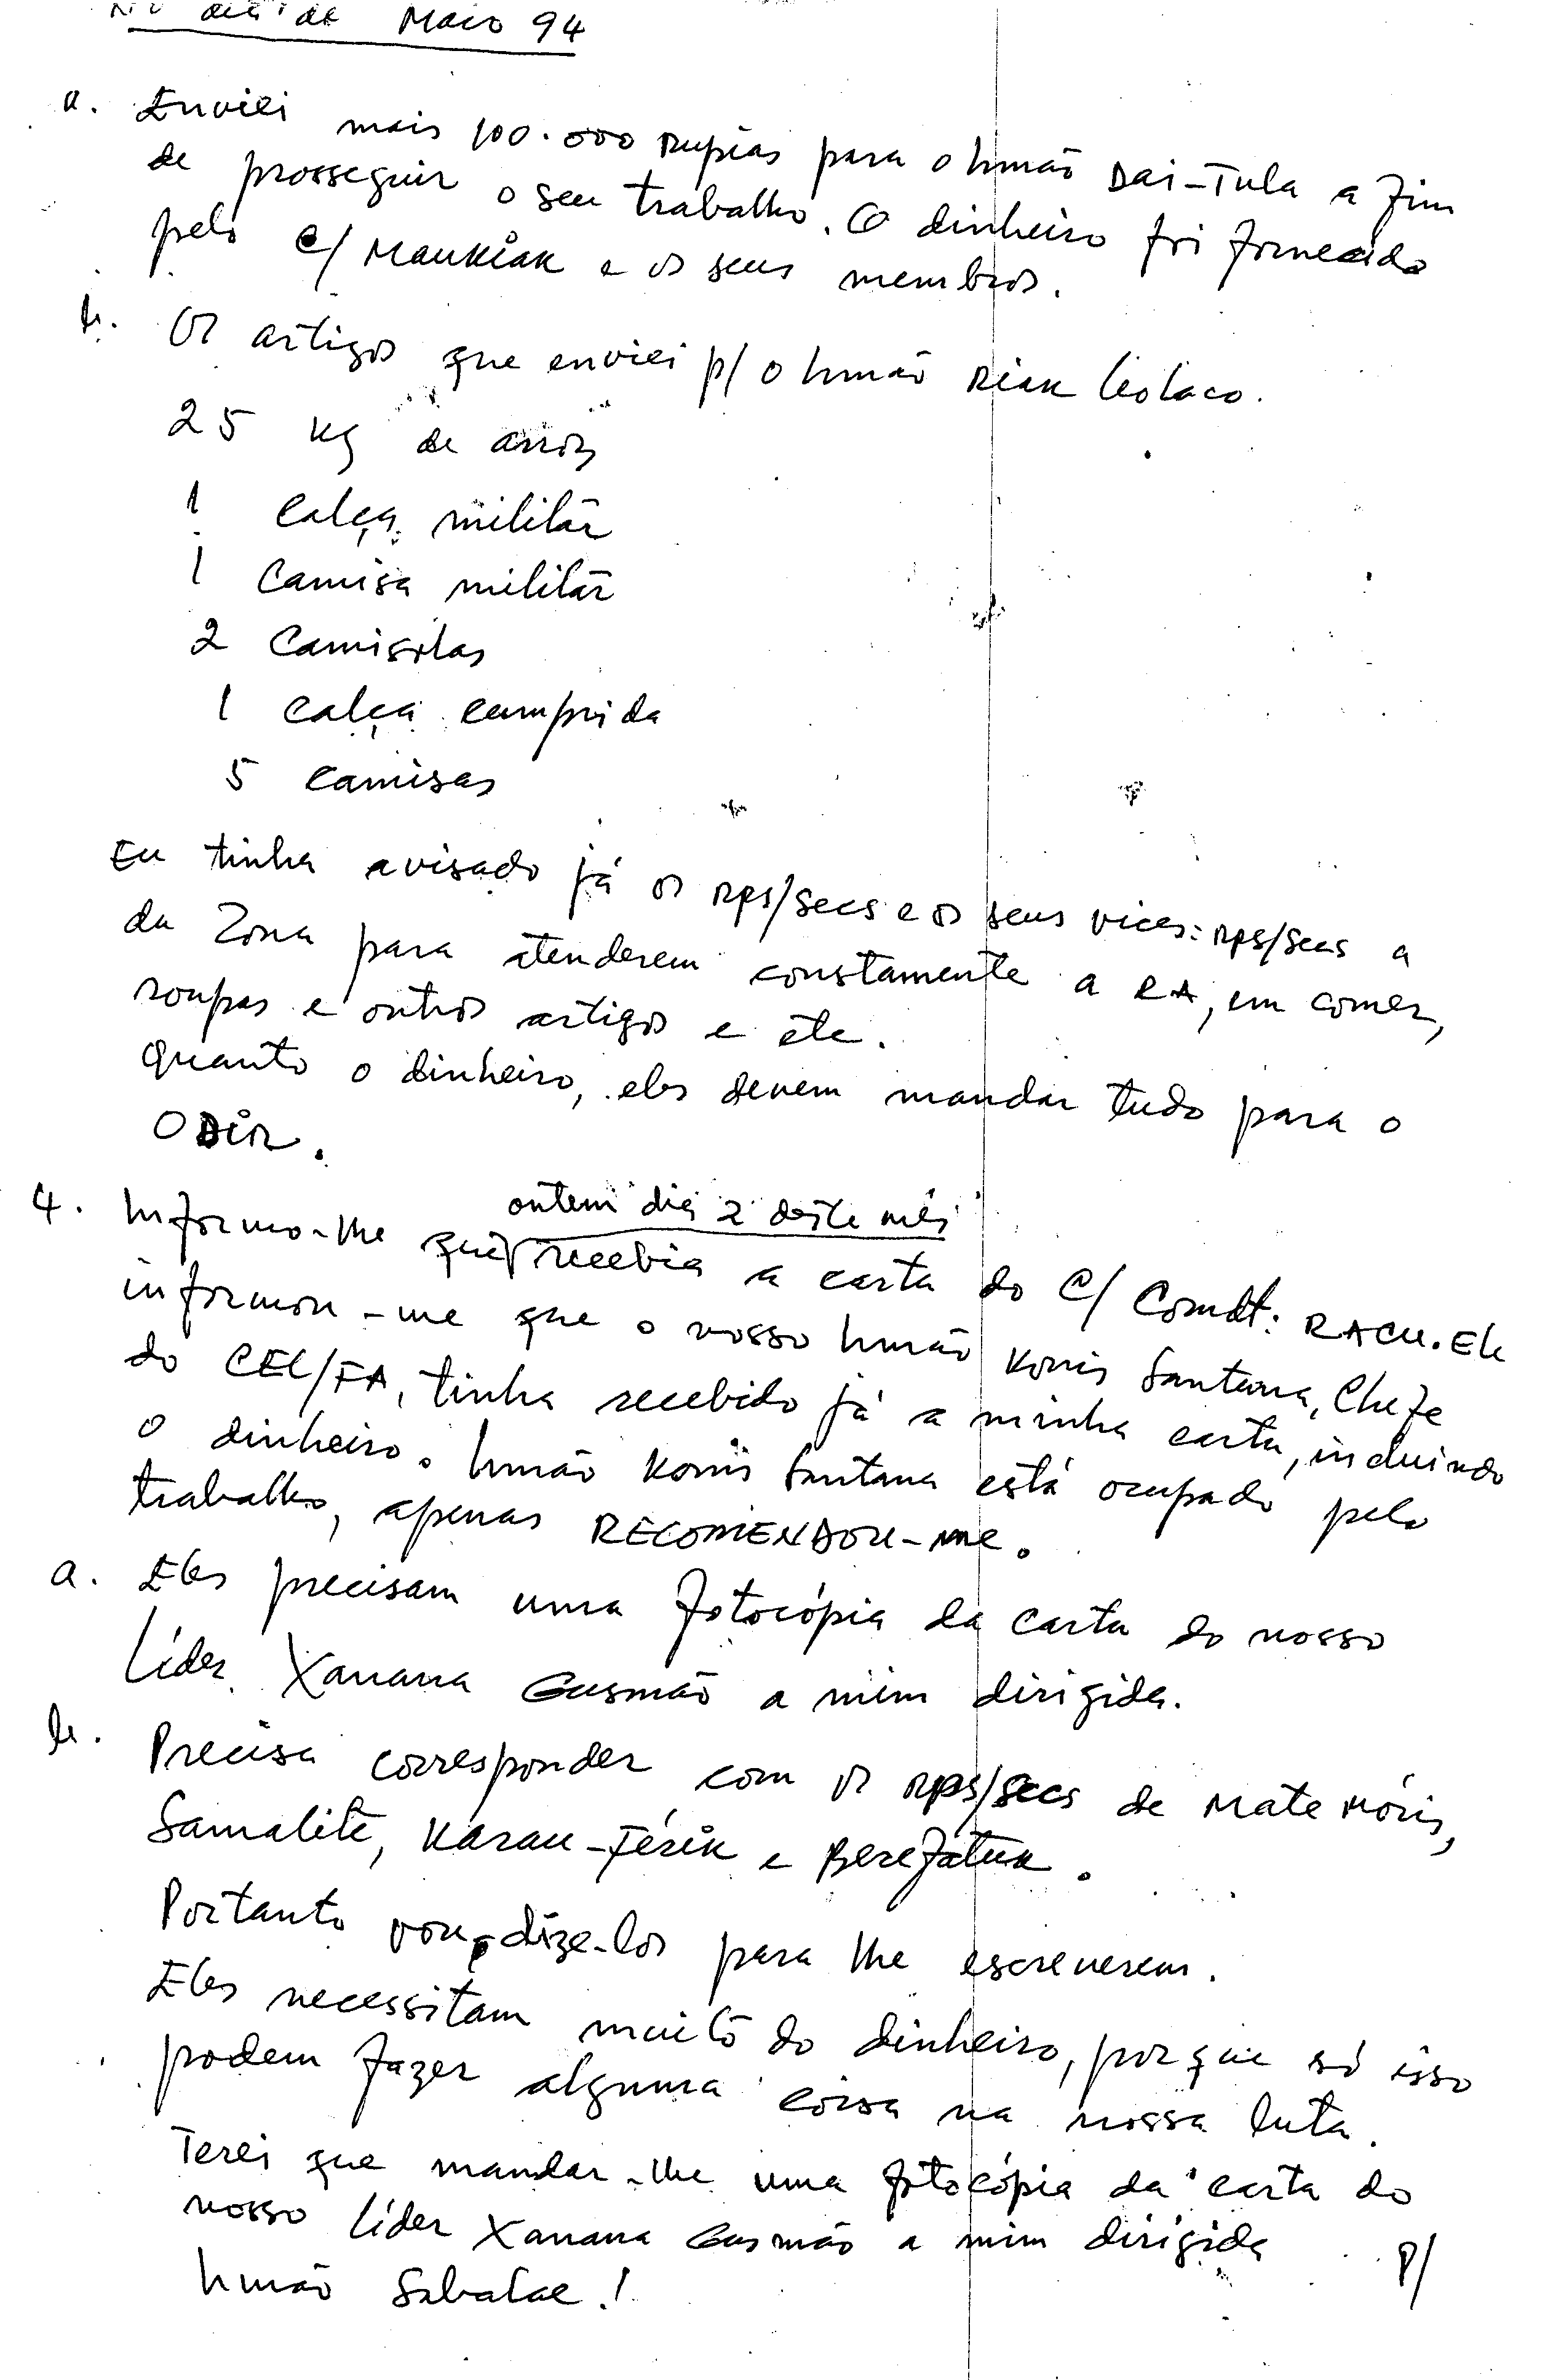 de Maio 94
a. Enviei mais 100.000 rupias para o Irmão Dai-Tula a fim
de prosseguir o seu trabalho. O dinheiro foi fornecido
pelo C/ Maukiak e os seus membros.
b. Os artigos que enviei p/ o Irmão Riak Leolaco.
25 kg de arroz
1 calça militar
1 Camisa militar
2 Camisolas
1 calça cumprida
5 camisas
Eu tinha avisado já os rps/secs e os seus vices: rps/secs a
da Zona para atenderem constamente a RA, em comer,
roupas e outros artigos e etc.
Quanto o dinheiro, eles devem mandar tudo para o
ODIR.
4. Informo-lhe que ontem dia 2 deste mês recebia a carta do C/ Comdt: RACU. Ele
informou-me que o nosso Irmão Konis Santana, Chefe
do CEL/FA, tinha recebido já a minha carta, incluindo
o dinheiro. Irmão Konis Santana está ocupado pelo
trabalho, apenas RECOMENDOU-me.
a. Eles precisam uma fotocópia da carta do nosso
Líder Xanana Gusmão a mim dirigida.
b. Precisa corresponder com os rps/secs de Mate Móris,
Samalete, Karau-Férik e Berefatuk.
Portanto vou dize-los para lhe escreverem.
Eles necessitam muito do dinheiro, porque só isso
podem fazer alguma coisa na nossa luta.
Terei que mandar-lhe uma fotocópia da carta do
nosso líder Xanana Gusmão a mim dirigida P/
Irmão Sabalae!